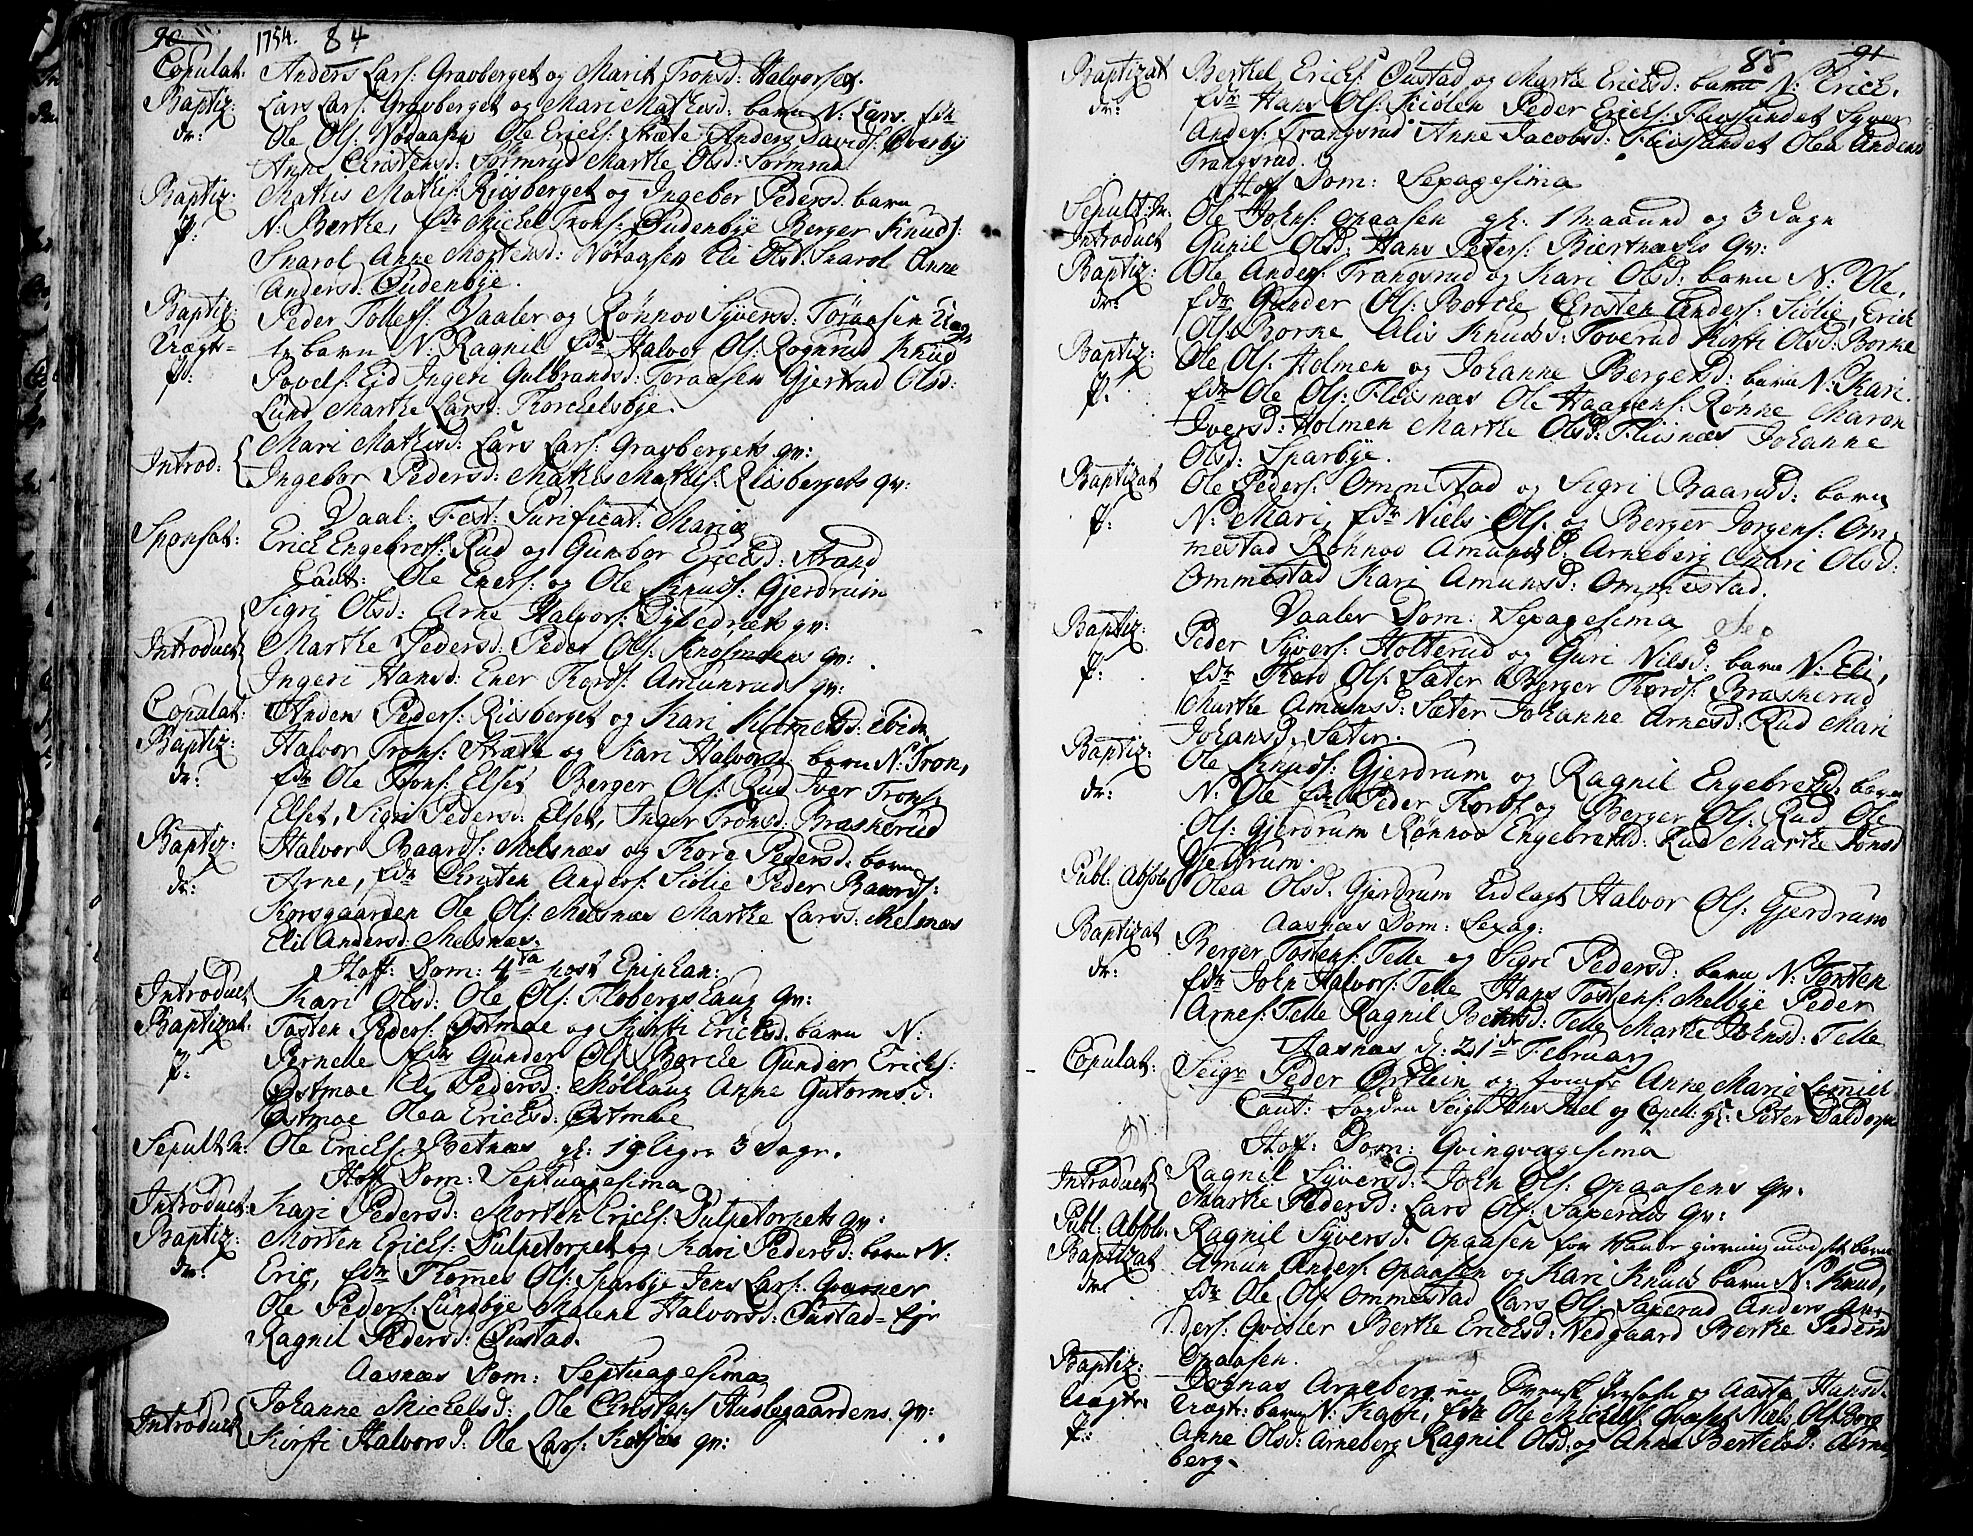 90 1754. 84
Copulat: Anders Lars: Gravberget og Marit Tronsd: Halvorset.
Baptiz: Lars Lars: Gravberget og Mari Mathisd: barn N: Lars. fdr
dr: Ole Ols: Nødaasen Ole Ericks: Stræte Anders Davids: Overby
Anne Christensd: Marthe Olsd:
Baptiz: Mathis Mathis: Riisberget og Ingebor Pedersd: barn
p: N: Berthe, fdr Mickel Trons: Oudenbye Berger Knuds:
Snarol Anne Mortensd: Nøtaasen Eli Olsd: Snarol Anne
Andersd: Oudenbye.
Baptiz: Peder Tollefs: Vaaler og Rønnov Syversd: Toraasen Uæg-
Uægt- te barn N: Ragnil fdr Halvor Ols: Rognrud Knud
p: Povels: Eid Ingeri Gulbrandsd: Toraasen Gjertrud Olsd:
Lund Marthe Larsd: Thorchelsbye.
Mari Mathisd: Lars Lars: Gravbergets qv:
Introd: Ingebor Pedersd: Mathis Mathis: Riisbergets qv:
Vaal: Fest: Purificat: Mariæ
Sponsat: Erick Engebrets: Rud og Gunbor Ericksd: Strand
Caut: Ole Eners: og Ole Knuds: Gjerdrum
Sigri Olsd: Arne Halvors: Dybedræts qv:
Introduct Marthe Pedersd: Peder Ols: Knosmoens qv:
Ingeri Hansd: Ener Thords: Amunruds qv:
Copulat: Anders Peders: Riisberget og Kari Klemetsd: ibid:
Baptiz: Halvor Trons: Stræte og Kari Halvorsd: barn N: Tron,
dr: fdr Ole Trons: Elset Berger Ols: Rud Iver Trons:
Elset, Sigri Pedersd: Elset, Inger Tronsd: Braskerud
Baptiz: Halvor Baards: Melsnæs og Thore Pedersd: barn
dr: Arne, fdr Christen Anders: Siolie Peder Baards:
Korsgaarden Ole Ols: Melsnæs Marthe Larsd: Melsnæs
Eli Andersd: Melsnæs.
Hoff: Dom: 4ta post Epiphan:
Introduct Kari Olsd: Ole Ols: Flobergshaug qv:
Baptizat: Tosten Peders: Østmoe og Kjersti Ericksd: barn N:
p: Pernelle fdr Gunder Ols: Borcke Gunder Ericks:
Østmoe Eli Pedersd: Møllaug Anne Gutormsd:
Østmoe Olea Ericksd: Østmoe
Sepult M: Ole Ericks: Betnæs gl: 19 Uger 3 Dage.
Hoff Dom: Septuagesima
Introduct: Kari Pedersd: Morten Ericks: Dulpetorpets qv:
Baptiz: Morten Ericks: Dulpetorpet og Kari Pedersd: barn N:
dr: Eric, fdr Thomes Ols: Sparbye Jens Lars:
Ole Peders: Lundbye Malene Halvorsd: Oustad-Eje
Ragnil Pedersd: Oustad.
Aasnæs Dom: Septuagesima
Johanne Mickelsd: Ole Christens: Huslegaardens qv:
Introduct Kersti Halvorsd: Ole Lars: qv:
85 91
Baptizat Berthel Ericks: Oustad og Marthe Ericksd: barn N: Erick.
dr: fdr Hans Ols: Kiølen Peder Ericks: Fliisundet Syver
Anders: Trangsrud Anne Jacobsd: Fliisundet Olea Andersd
Trangsrud.
Hoff Dom: Sexagesima
Sepult: M: Ole Johns: Opaasen gl: 1 Maaned og 3 Dage
Introduct Gunil Olsd: Hans Peders: Biertnæsis qv:
Baptiz: Ole Anders: Trangsrud og Kari Olsd: barn N: Ole,
dr: fdr Gunder Ols: Borcke Christen Anders: Siolie, Erick
Ols: Borne Alis Knudsd: Toverud Kirsti Olsd: Borne
Baptiz: Ole Ols: Holmen og Johanne Bergersd: barn N: Kari.
p: fdr Ole Ols: Fliisnæs Ole Haagens: Rønne Maren
Iversd: Holmen Marthe Olsd: Fliisnæs Johanne
Olsd: Sparbye.
Baptizat Ole Peders: Ommestad og Sigri Baardsd: barn
p: N: Mari, fdr Niels Ols: og Berger Jørgens: Om-
mestad Rønnov Amundsd: Arneberg Mari Olsd:
Ommestad Kari Amunsd: Ommestad.
Vaaler Dom: Sexagesima
Baptiz: Peder Syvers: Holterud og Guri Nielsd: barn N: Eli,
p: fdr Thord Ols: Sæter Berger Thords: Braskerud
Marthe Amunsd: Sæter Johanne Arnesd: Rud Mari
Johansd: Sæter.
Baptiz: Ole Knuds: Gjerdrum og Ragnil Engebretsd: barn
dr: N: Ole fdr Peder Thords: og Berger Ols: Rud Ole
Ols: Gjerdrum Rønnov Engebretsd: Rud Marthe Tronsd
Gjerdrum.
Publ: Absolv: Olea Olsd: Gjerdrum Udlagt Halvor Ols: Gjerdrum
Aasnæs Dom: Sexag:
Baptizat Berger Tostens: Telle og Sigri Pedersd: barn N: Torsten
dr: fdr John Halvors: Telle Hans Tostens: Melbye Peder
Arnes: Telle Ragnil Berthsd: Telle Marthe Johnsd: Telle
Aasnæs d: 21de Februar
Copulat: Seigr Peder Ørtlein og Jomfr Anne Marie Lemich
Caut: Seigr Jens Juel og Capell: Hr: Peter Daldorph
Hoff: Dom: Qvinqvagesima
Introduct Ragnil Syversd: John Ols: Opaasens qv:
Marthe Pedersd: Lars Ols: Saxeruds qv:
Publ: Absolv: Ragnil Syversd: Opaasen for Vanværgierning mod sit barn
Baptizat Amun Anders: Opaasen og Kari Knudsd: barn N: Knud,
dr: fdr Ole Ols: Ommestad Lars Ols: Saxerud Anders An-
ders: Qvesler Berthe Ericksd: Nedgaard Berthe Pedersd
Opaasen.
Baptiz: Jonas Arneberg en Svensk Person og Aaste Hansd:
Uægte: Uægte: barn N: Kari, fdr Ole Mickels: Niels Ols: Borg
p: Anne Olsd: Arneberg Ragnil Olsd: og Anne Berthelsd: Arne-
berg.